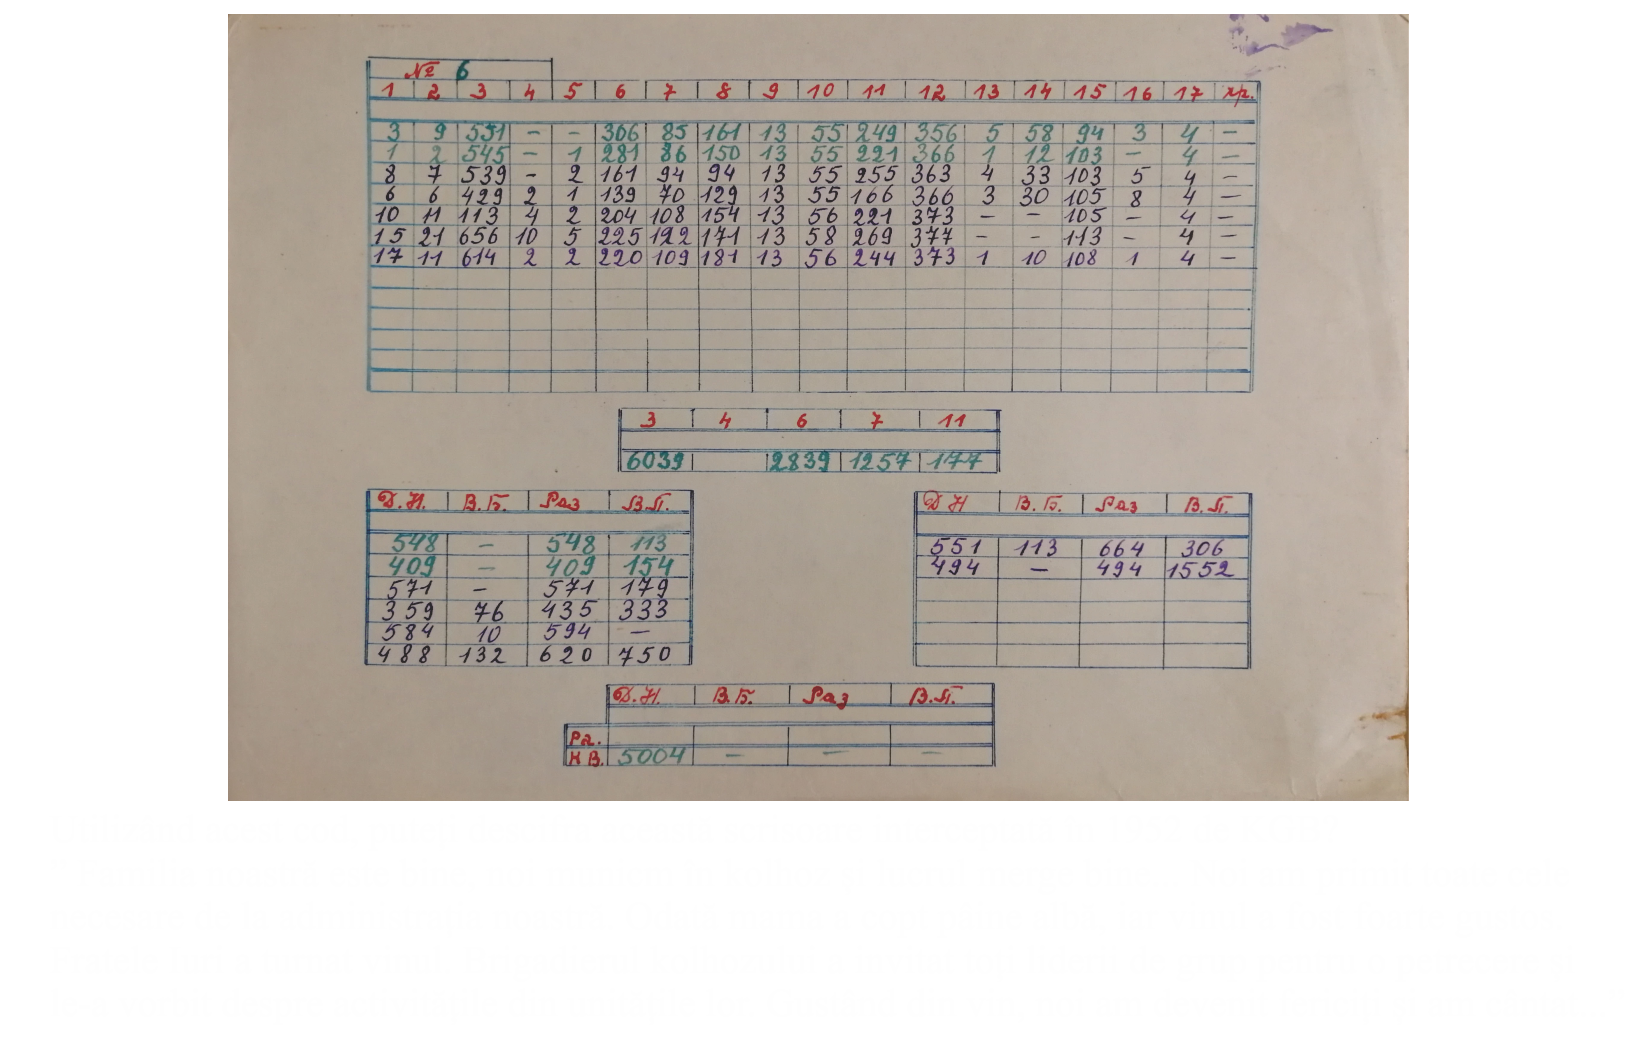 № 6
1 2 3 4 5 6 7 8 9 10 11 12 13 14 15 16 17 хр.
3 9 551 - - 306 85 161 13 55 249 356 5 58 94 3 4 -
1 2 545 - 1 281 86 150 13 55 221 366 1 12 103 - 4 -
8 7 539 - 2 161 94 94 13 55 255 363 4 33 103 5 4 -
6 6 429 2 1 139 70 129 13 55 166 366 3 30 105 8 4 -
10 11 113 4 2 204 108 154 13 56 221 373 - - 105 - 4 -
15 21 656 10 5 225 122 171 13 58 269 377 - - 113 - 4 -
17 11 614 2 2 220 109 181 13 56 244 373 1 10 108 1 4 -
3 4 6 7 11
6039 2839 1257 177
Д.Н. В.Б. Раз В.П.
548 - 548 113
409 - 409 154
571 - 571 179
359 76 435 333
584 10 594 -
488 132 620 750
Д Н В.Б. Раз В.П.
551 113 664 306
494 - 494 1552
Д.Н. В.Б. Раз В.П.
Рг.
Н В. 5004 - - -